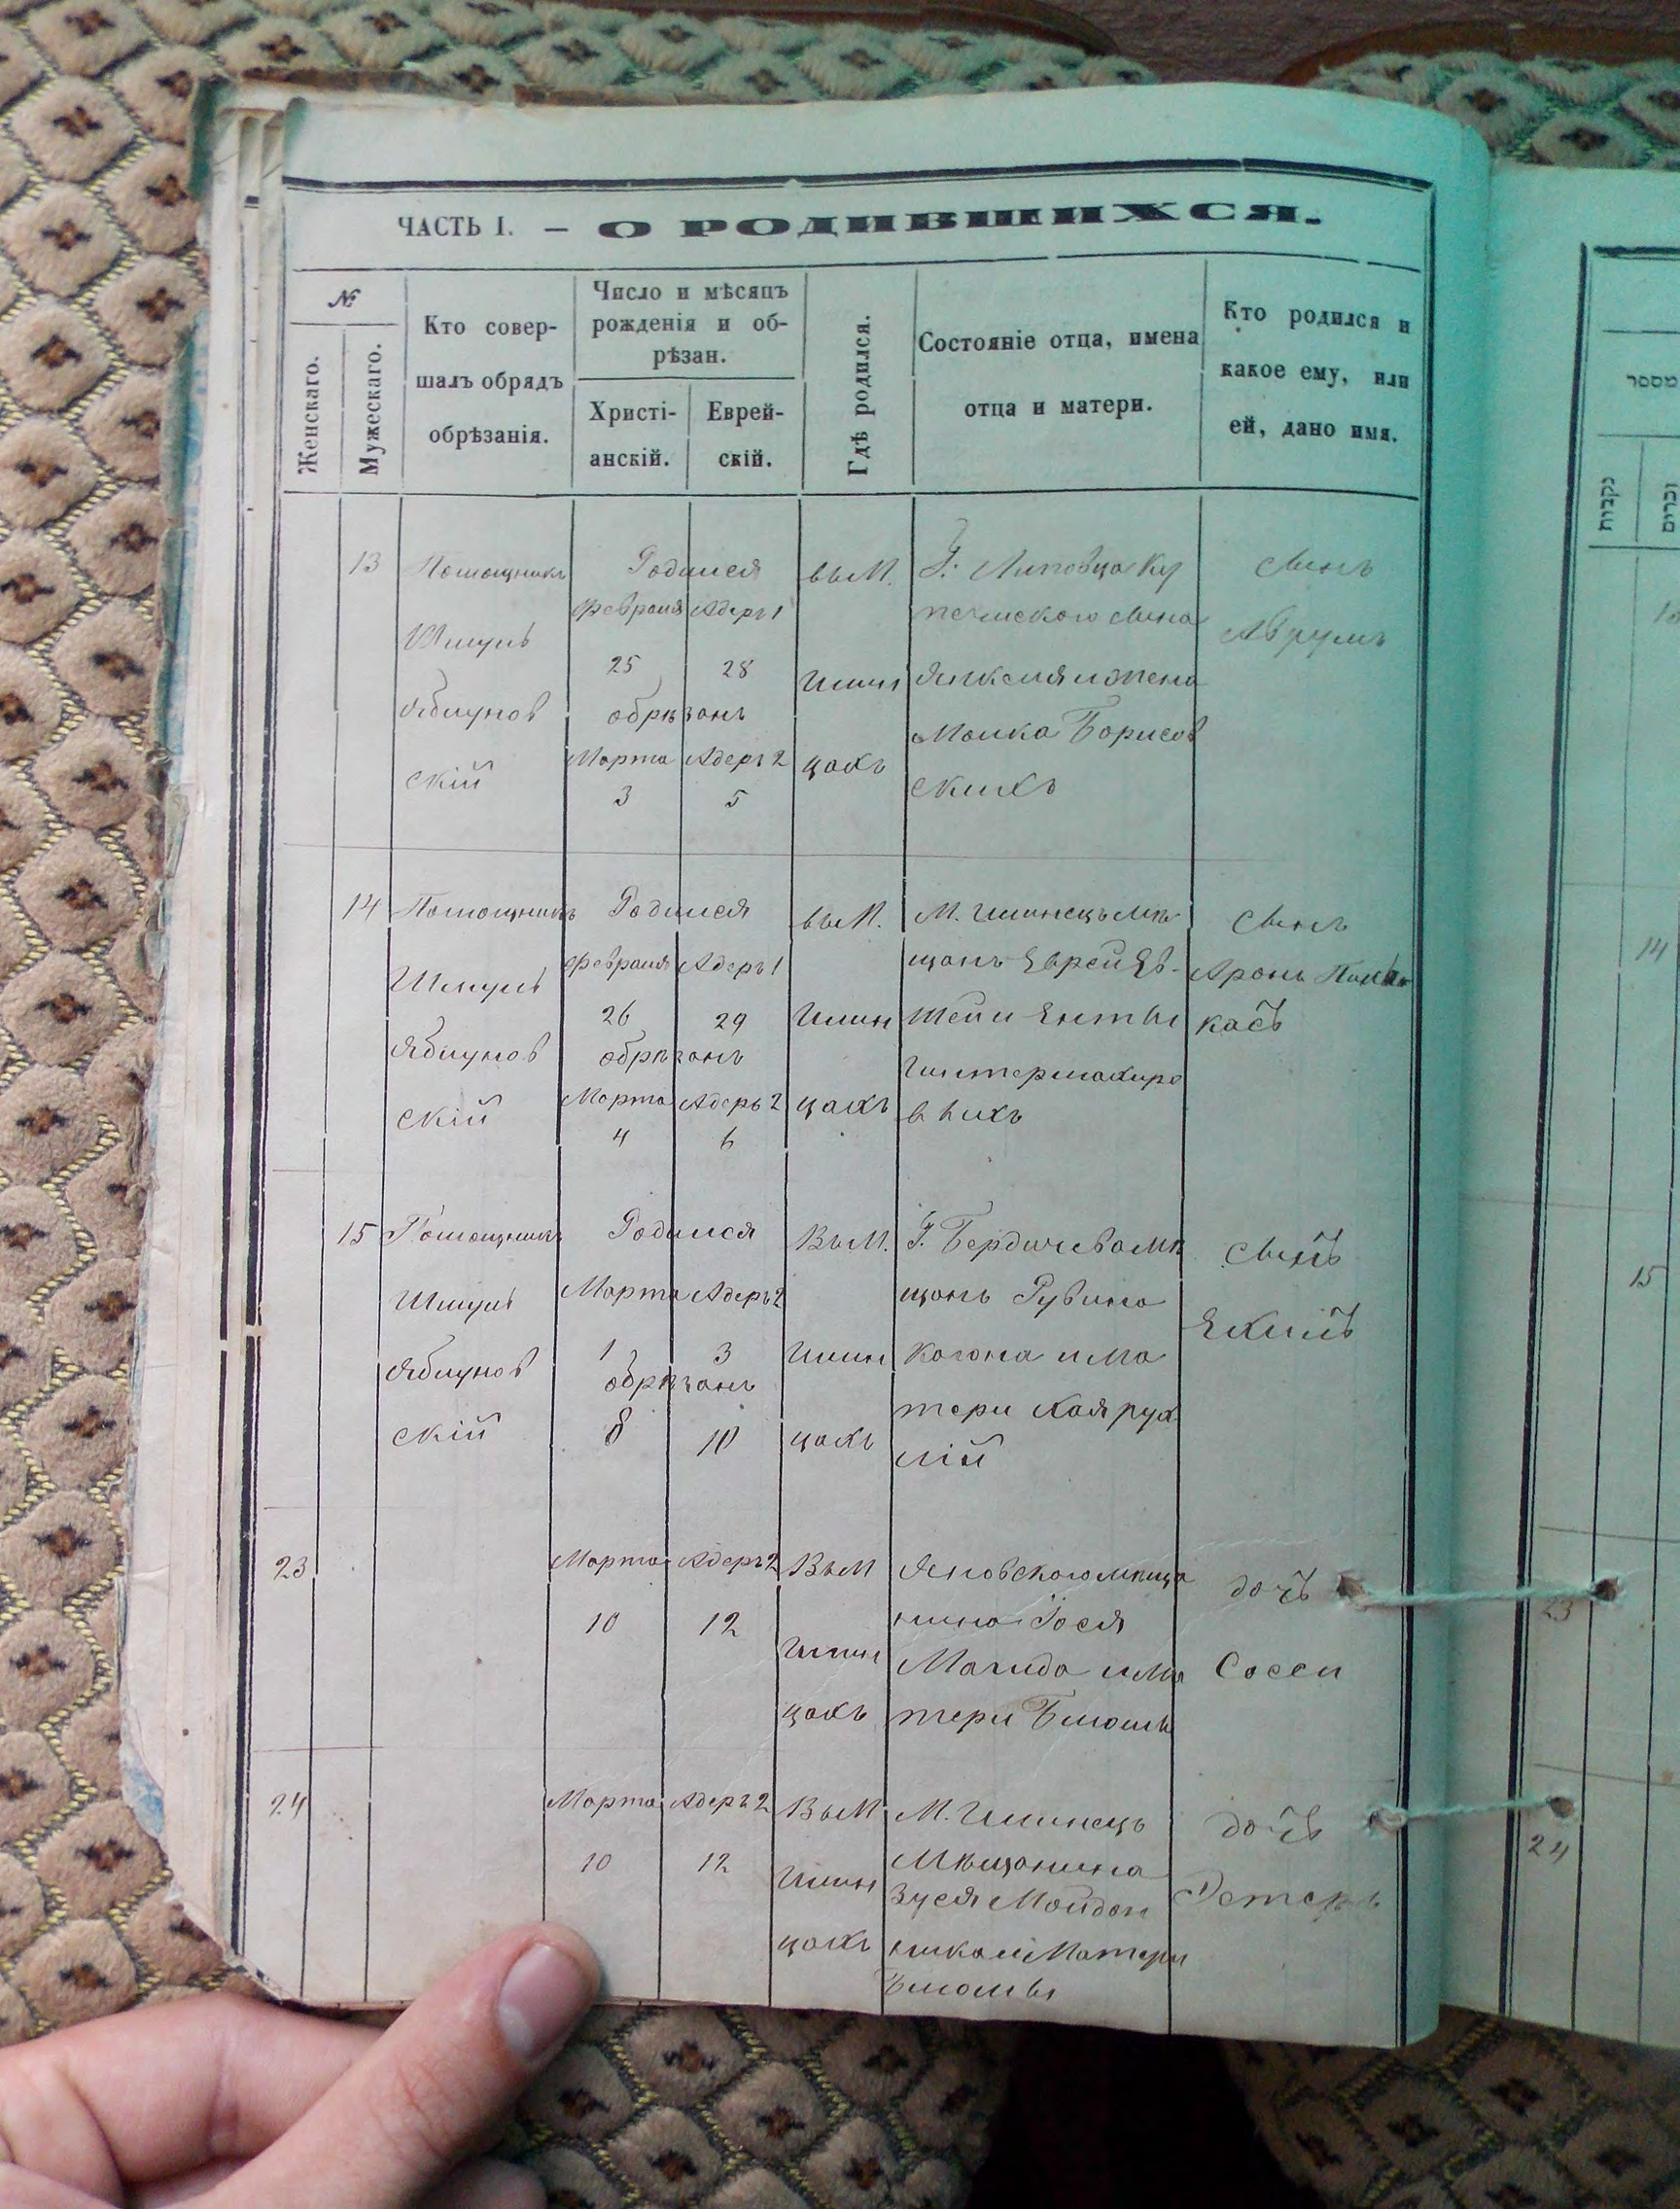 ЧАСТЬ I. — О РОДИВШИХСЯ.
№
Женскаго.
Мужескаго.
Кто совер-
шалъ обрядъ
обрѣзанія.
Число и мѣсяцъ
рожденія и об-
рѣзан.
Христі-
анскій.
Еврей-
скій.
Гдѣ родился.
Состояніе отца, имена
отца и матери.
Кто родился и
какое ему, или
ей, дано имя.
13
Помощникъ
Шмуль
Яблунов
скій
Родился
Февраля Адеръ 1
25 28
обрѣзанъ
Марта Адеръ 2
3 5
въ М.
Илин
цахъ
Г. Липовца Ку
печискаго сына
Янкеля и жена
Малка Борисов
скихъ
Сынъ
Аврумъ
14
Помощникъ
Шмуль
Яблунов
скій
Родился
Февраля Адеръ 1
26 29
обрѣзанъ
Марта Адеръ 2
4 6
въ М.
Илин
цахъ
М. Илинецъ мѣ
щанъ Еврей
и Енты
выхъ
Сынъ
Аронъ
касъ
15
Помощникъ
Шмуль
Яблунов
скій
Родился
Марта Адеръ 2
1 3
обрѣзанъ
8 10
Въ М.
Илин
цахъ
Г. Бердичева мѣ
щанъ Рувина
Когона и ма
тери Хая рух
лій
Сынъ
Екиль
23
Марта Адеръ 2
10 12
Въ М
Илин
цахъ
Яновского мѣща
нина Іося
Магида и ма
тери Блюмѣ
дочь
Сосси
24
Марта Адеръ 2
10 12
Въ М
Илин
цахъ
М. Илинецъ
Мѣщанина
Зуся Мойдан
ника и Матери
Блюмы
дочь
Эстеръ
מספר
נקבות
זכרים
14
15
23
24